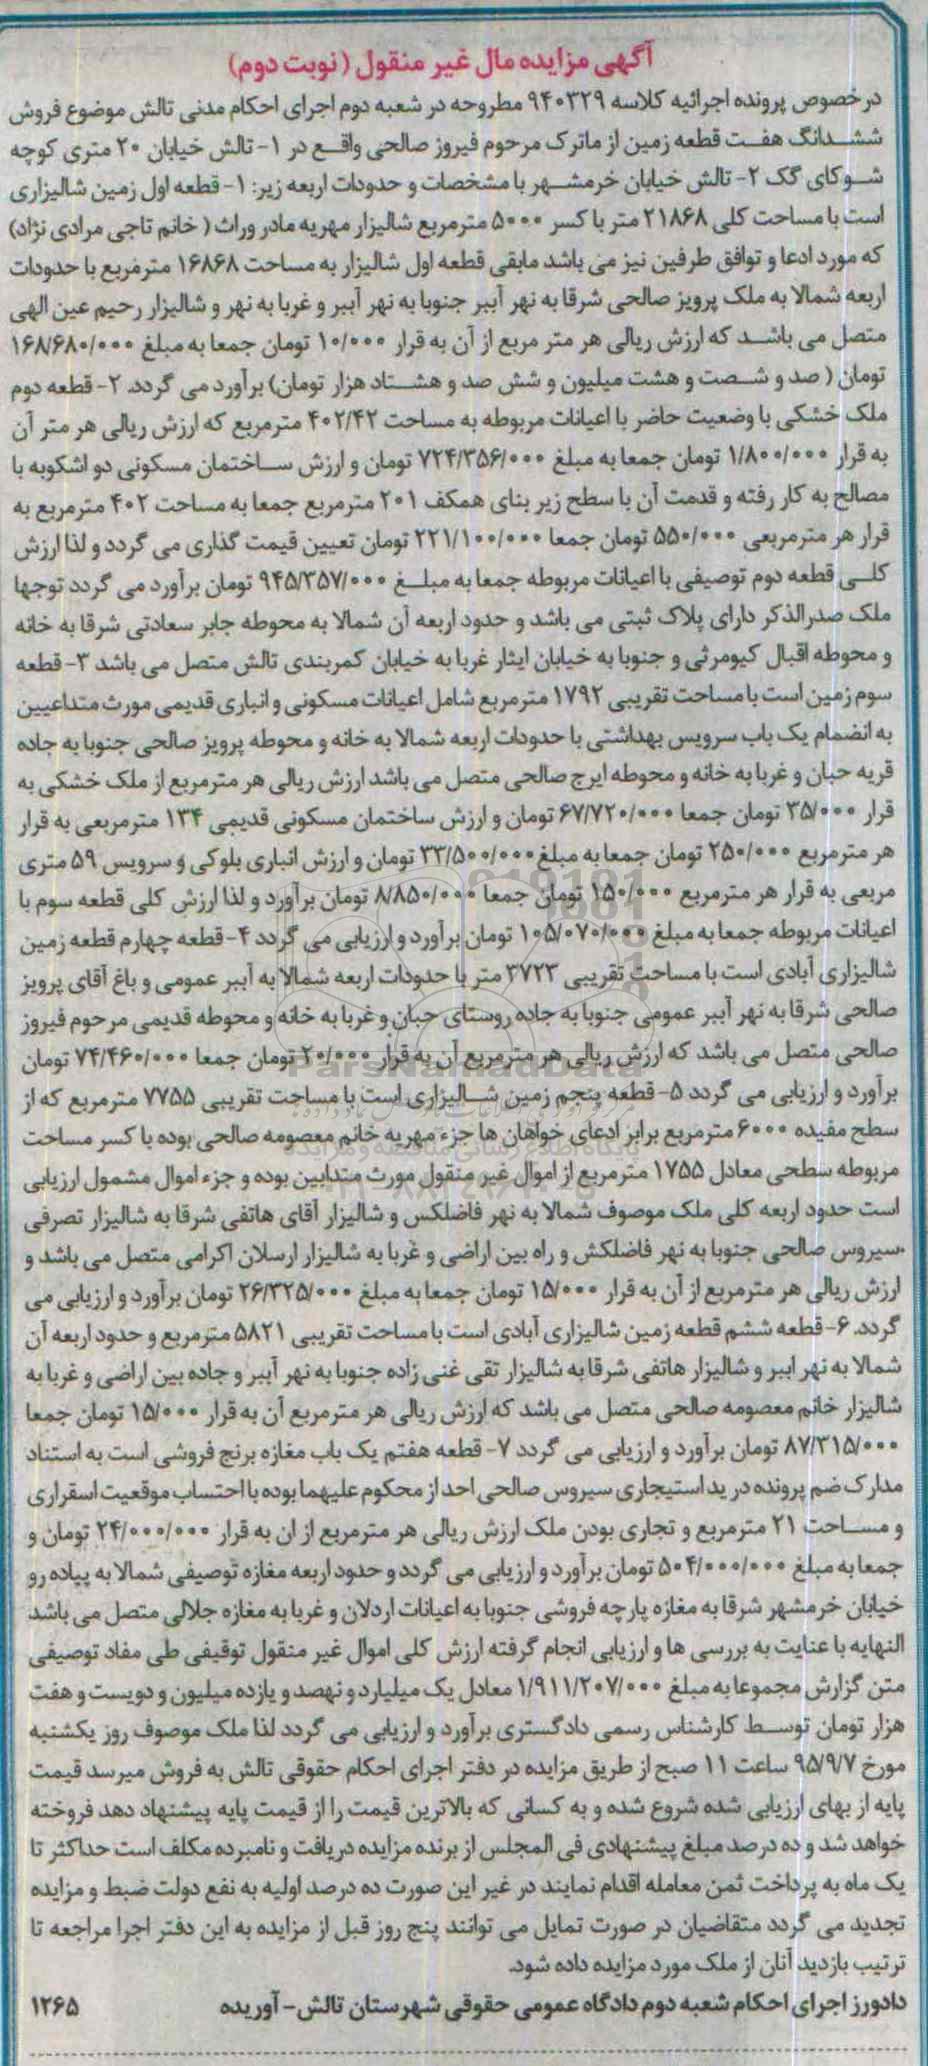 آگهی مزایده مال غیر منقول (نوبت دوم)
درخصوص پرونده اجرائیه کلاسه ۹۴۰۳۲۹ مطروحه در شعبه دوم اجرای احکام مدنی تالش موضوع فروش
ششدانگ هفت قطعه زمین از ماترک مرحوم فیروز صالحی واقع در ۱- تالش خیابان ۲۰ متری کوچه
شوکای گک ۲- تالش خیابان خرمشهر با مشخصات و حدودات اربعه زیر: ۱- قطعه اول زمین شالیزاری
است با مساحت کلی ۲۱۸۶۸ متر با کسر ۵۰۰۰ مترمربع شالیزار مهریه مادر وراث ( خانم تاجی مرادی نژاد)
که مورد ادعا و توافق طرفین نیز می باشد مابقی قطعه اول شالیزار به مساحت ۱۶۸۶۸ مترمربع با حدودات
اربعه شمالا به ملک پرویز صالحی شرقا به نهر آببر جنوبا به نهر آببر و غربا به نهر و شالیزار رحیم عین الهی
متصل می باشد که ارزش ریالی هر متر مربع از آن به قرار ۱۰/۰۰۰ تومان جمعا به مبلغ ۱۶۸/۶۸۰/۰۰۰
تومان ( صد و شصت و هشت میلیون و شش صد و هشتاد هزار تومان) برآورد می گردد. ۲- قطعه دوم
ملک خشکی با وضعیت حاضر با اعیانات مربوطه به مساحت ۴۰۲/۴۲ مترمربع که ارزش ریالی هر متر آن
به قرار ۱/۸۰۰/۰۰۰ تومان جمعا به مبلغ ۷۲۴/۳۵۶/۰۰۰ تومان و ارزش ساختمان مسکونی دو اشکوبه با
مصالح به کار رفته و قدمت آن با سطح زیر بنای همکف ۲۰۱ مترمربع جمعا به مساحت ۴۰۲ مترمربع به
قرار هر مترمربعی ۵۵۰/۰۰۰ تومان جمعا ۲۲۱/۱۰۰/۰۰۰ تومان تعیین قیمت گذاری می گردد و لذا ارزش
کلی قطعه دوم توصیفی با اعیانات مربوطه جمعا به مبلغ ۹۴۵/۳۵۷/۰۰۰ تومان برآورد می گردد توجها
ملک صدرالذکر دارای پلاک ثبتی می باشد و حدود اربعه آن شمالا به محوطه جابر سعادتی شرقا به خانه
و محوطه اقبال کیومرثی و جنوبا به خیابان ایثار غربا به خیابان کمربندی تالش متصل می باشد ۳- قطعه
سوم زمین است با مساحت تقریبی ۱۷۹۲ مترمربع شامل اعیانات مسکونی و انباری قدیمی مورث متداعیین
به انضمام یک باب سرویس بهداشتی با حدودات اربعه شمالا به خانه و محوطه پرویز صالحی جنوبا به جاده
قریه حیان و غربا به خانه و محوطه ایرج صالحی متصل می باشد ارزش ریالی هر مترمربع از ملک خشکی به
قرار ۳۵/۰۰۰ تومان جمعا ۶۷/۷۲۰/۰۰۰ تومان و ارزش ساختمان مسکونی قدیمی ۱۳۴ مترمربعی به قرار
هر مترمربع ۲۵۰/۰۰۰ تومان جمعا به مبلغ ۳۳/۵۰۰/۰۰۰ تومان و ارزش انباری بلوکی و سرویس ۵۹ متری
مربعی به قرار هر مترمربع ۱۵۰/۰۰۰ تومان جمعا ۸/۸۵۰/۰۰۰ تومان برآورد و لذا ارزش کلی قطعه سوم با
اعیانات مربوطه جمعا به مبلغ ۱۰۵/۰۷۰/۰۰۰ تومان برآورد و ارزیابی می گردد ۴- قطعه چهارم قطعه زمین
شالیزاری آبادی است با مساحت تقریبی ۳۷۲۳ متر با حدودات اربعه شمالا به آببر عمومی و باغ آقای پرویز
صالحی شرقا به نهر آببر عمومی جنوبا به جاده روستای حیان و غربا به خانه و محوطه قدیمی مرحوم فیروز
صالحی متصل می باشد که ارزش ریالی هر مترمربع آن به قرار ۲۰/۰۰۰ تومان جمعا ۷۴/۴۶۰/۰۰۰ تومان
برآورد و ارزیابی می گردد ۵- قطعه پنجم زمین شالیزاری است با مساحت تقریبی ۷۷۵۵ مترمربع که از
سطح مفیده ۶۰۰۰ مترمربع برابر ادعای خواهان ها جزء مهریه خانم معصومه صالحی بوده با کسر مساحت
مربوطه سطحی معادل ۱۷۵۵ مترمربع از اموال غیر منقول مورث متدابین بوده و جزء اموال مشمول ارزیابی
است حدود اربعه کلی ملک موصوف شمالا به نهر فاضلکس و شالیزار آقای هاتفی شرقا به شالیزار تصرفی
سیروس صالحی جنوبا به نهر فاضلکش و راه بین اراضی و غربا به شالیزار ارسلان اکرامی متصل می باشد و
ارزش ریالی هر مترمربع از آن به قرار ۱۵/۰۰۰ تومان جمعا به مبلغ ۲۶/۳۲۵/۰۰۰ تومان برآورد و ارزیابی می
گردد. ۶- قطعه ششم قطعه زمین شالیزاری آبادی است با مساحت تقریبی ۵۸۲۱ مترمربع و حدود اربعه آن
شمالا به نهر اببر و شالیزار هاتفی شرقا به شالیزار تقی غنی زاده جنوبا به نهر آببر و جاده بین اراضی و غربا به
شالیزار خانم معصومه صالحی متصل می باشد که ارزش ریالی هر مترمربع آن به قرار ۱۵/۰۰۰ تومان جمعا
۸۷/۳۱۵/۰۰۰ تومان برآورد و ارزیابی می گردد ۷- قطعه هفتم یک باب مغازه برنج فروشی است به استناد
مدارک ضم پرونده در ید استیجاری سیروس صالحی احد از محکوم علیهما بوده با احتساب موقعیت اسقراری
و مساحت ۲۱ مترمربع و تجاری بودن ملک ارزش ریالی هر مترمربع از ان به قرار ۲۴/۰۰۰/۰۰۰ تومان و
جمعا به مبلغ ۵۰۴/۰۰۰/۰۰۰ تومان برآورد و ارزیابی می گردد و حدود اربعه مغازه توصیفی شمالا به پیاده رو
خیابان خرمشهر شرقا به مغازه پارچه فروشی جنوبا به اعیانات اردلان و غربا به مغازه جلالی متصل می باشد
النهایه با عنایت به بررسی ها و ارزیابی انجام گرفته ارزش کلی اموال غیر منقول توقیفی طی مفاد توصیفی
متن گزارش مجموعا به مبلغ ۱/۹۱۱/۲۰۷/۰۰۰ معادل یک میلیارد و نهصد و یازده میلیون و دویست و هفت
هزار تومان توسط کارشناس رسمی دادگستری برآورد و ارزیابی می گردد لذا ملک موصوف روز یکشنبه
مورخ ۹۵/۹/۷ ساعت ۱۱ صبح از طریق مزایده در دفتر اجرای احکام حقوقی تالش به فروش میرسد قیمت
پایه از بهای ارزیابی شده شروع شده و به کسانی که بالاترین قیمت را از قیمت پایه پیشنهاد دهد فروخته
خواهد شد و ده درصد مبلغ پیشنهادی فی المجلس از برنده مزایده دریافت و نامبرده مکلف است حداکثر تا
یک ماه به پرداخت ثمن معامله اقدام نمایند در غیر این صورت ده درصد اولیه به نفع دولت ضبط و مزایده
تجدید می گردد متقاضیان در صورت تمایل می توانند پنج روز قبل از مزایده به این دفتر اجرا مراجعه تا
ترتیب بازدید آنان از ملک مورد مزایده داده شود.
دادورز اجرای احکام شعبه دوم دادگاه عمومی حقوقی شهرستان تالش- آوریده ۱۲۶۵
ParsNamadData
پایگاه اطلاع رسانی مناقصه و مزایده